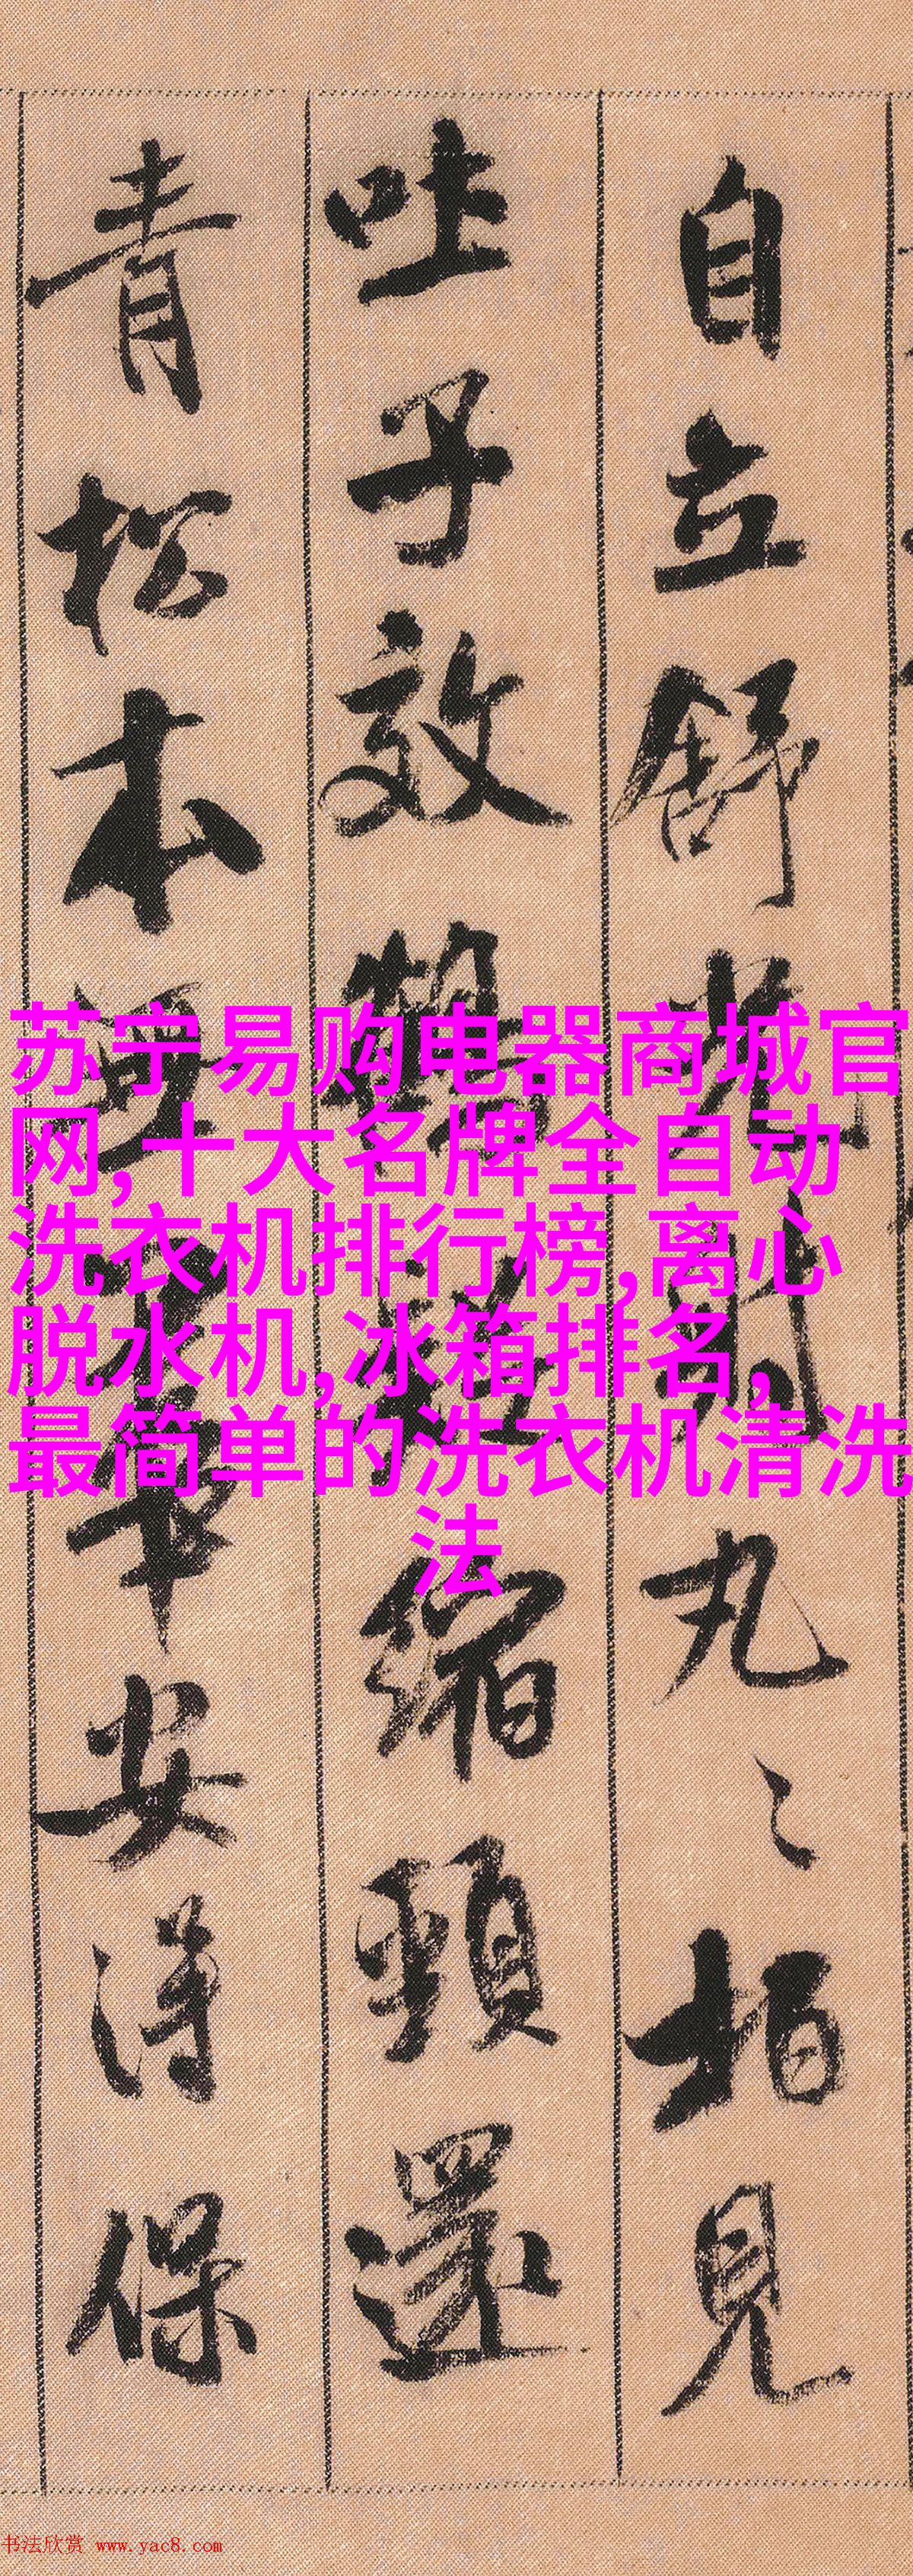 自立舒光射丸〻柏見
吐子效鶴疑縮頸還
青松本無華安得保
苏宁易购电器商城官
网,十大名牌全自动
洗衣机排行榜,离心
脱水机,冰箱排名,
最简单的洗衣机清洗
法
书法欣赏 www.yac8.com